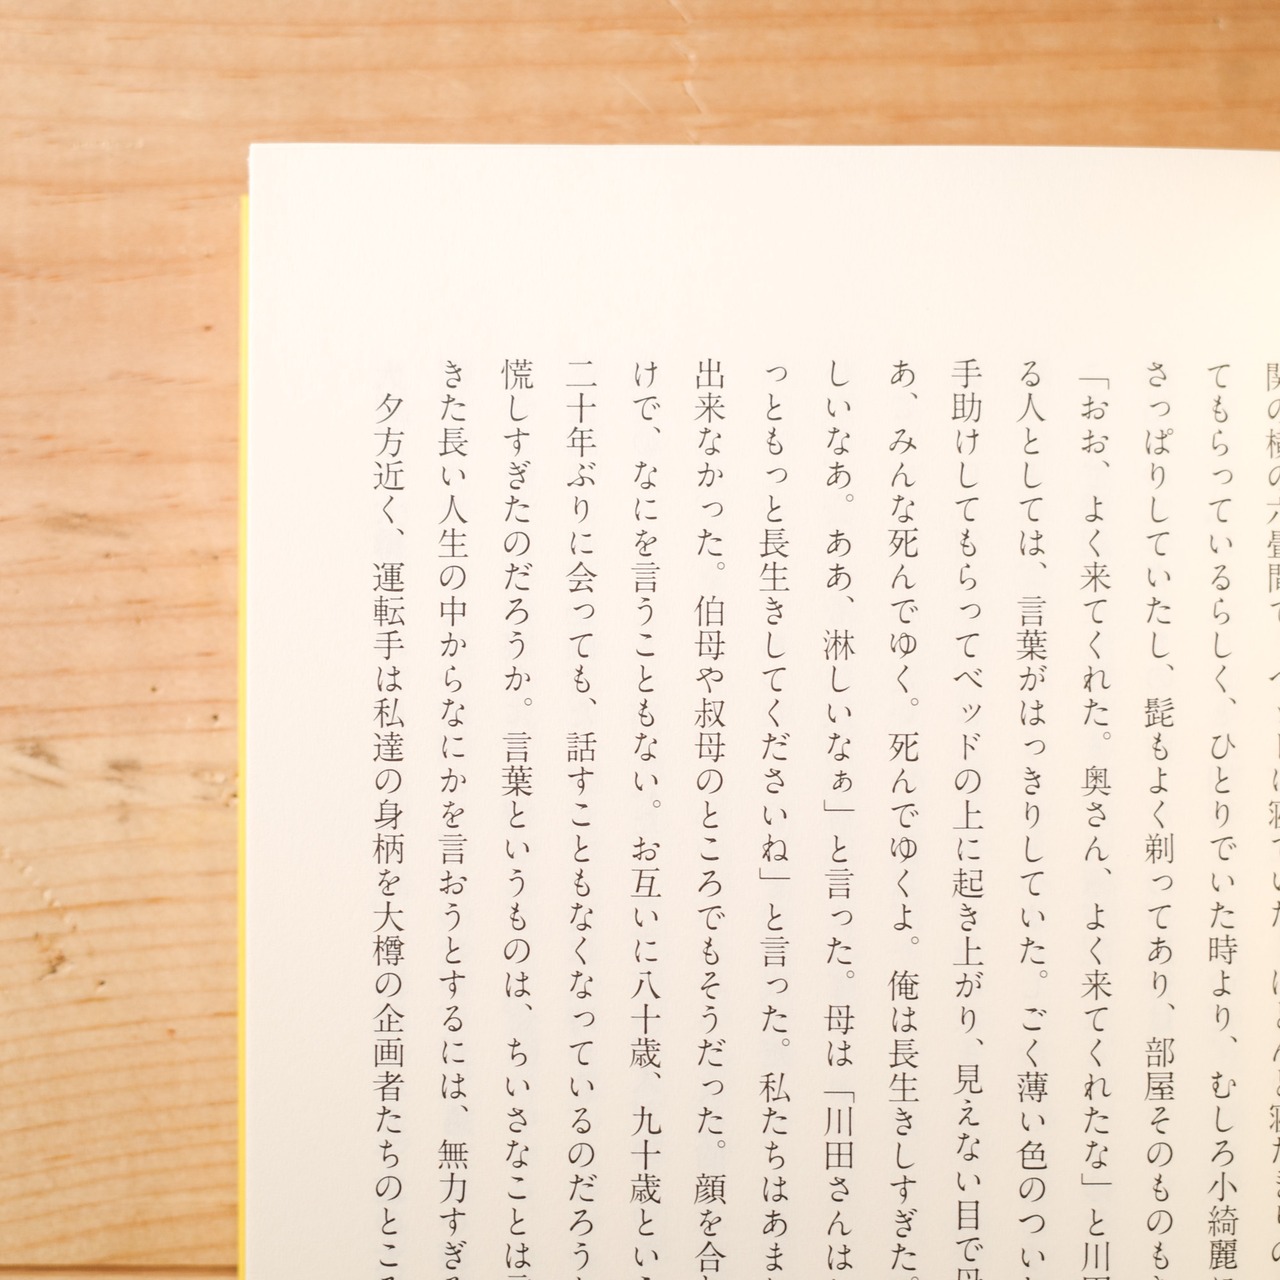 関の横の六畳間で、ベッドに寝ていた。ほとんど寝たきりの
てもらっているらしく、ひとりでいた時より、むしろ小綺麗
さっぱりしていたし、髭もよく剃ってあり、部屋そのものも
「おお、よく来てくれた。奥さん、よく来てくれたな」と川田
る人としては、言葉がはっきりしていた。ごく薄い色のつい
手助けしてもらってベッドの上に起き上がり、見えない目で母
あ、みんな死んでゆく。死んでゆくよ。俺は長生きしすぎた。
しいなあ。ああ、淋しいなぁ」と言った。母は「川田さんは
っともっと長生きしてくださいね」と言った。私たちはあま
出来なかった。伯母や叔母のところでもそうだった。顔を合
けで、なにを言うこともない。お互いに八十歳、九十歳とい
二十年ぶりに会っても、話すこともなくなっているのだろう
慌しすぎたのだろうか。言葉というものは、ちいさなことは
きた長い人生の中からなにかを言おうとするには、無力すぎ
夕方近く、運転手は私達の身柄を大樽の企画者たちのところ